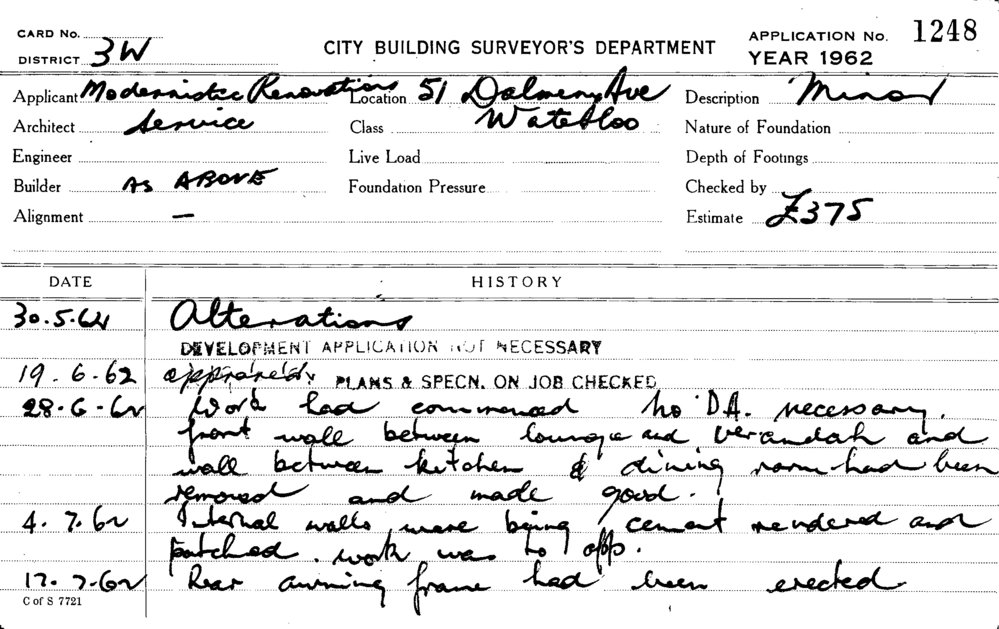 CARD No.
DISTRICT 3W
CITY BUILDING SURVEYOR'S DEPARTMENT
APPLICATION No. 1248
YEAR 1962
Applicant Modernistic Renovations Location 51 Dalmeny Ave Description Minor
Architect Service Class Waterloo Nature of Foundation
Engineer Live Load Depth of Footings
Builder AS ABOVE Foundation Pressure Checked by
Alignment — Estimate £375
DATE HISTORY
30.5.62 Alterations
DEVELOPMENT APPLICATION NOT NECESSARY
19.6.62 approved PLANS & SPECN. ON JOB CHECKED
28.6.62 Work had commenced no DA. necessary.
front wall between lounge and verandah and
wall between kitchen & dining room had been
removed and made good.
4.7.62 Internal walls were being cement rendered and
patched. work was to app.
17.7.62 Rear awning frame had been erected.
C of S 7721